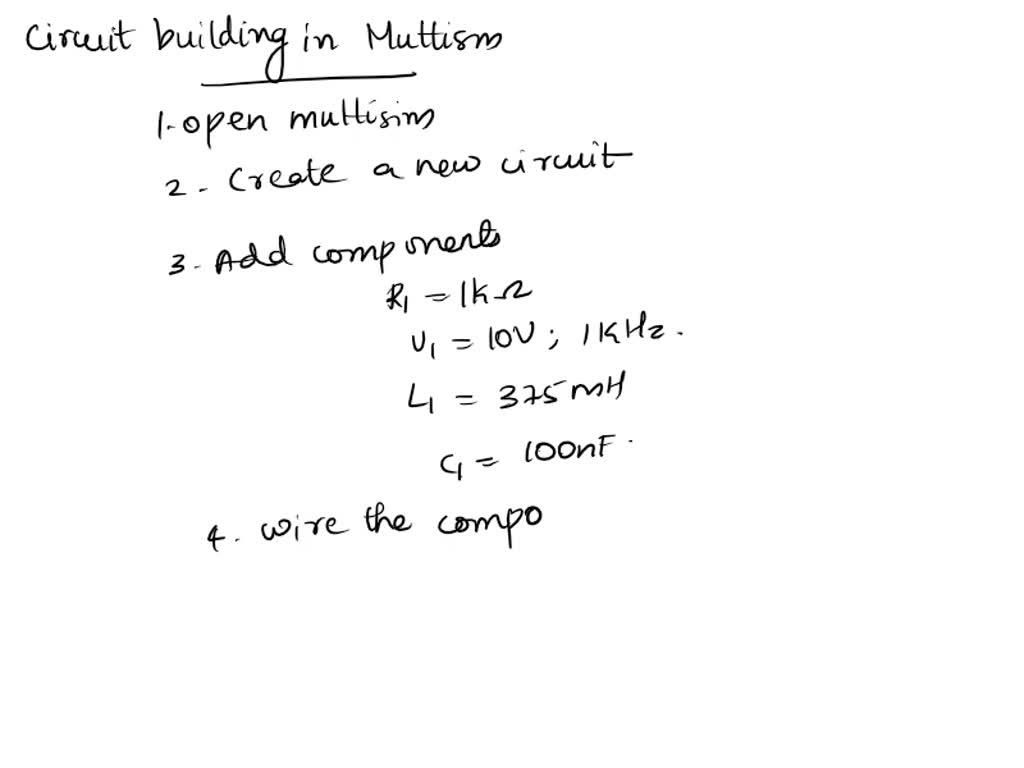 Circuit building in Multism
1. open multisim
2. Create a new circuit
3. Add components
R1 = 1kΩ
V1 = 10V ; 1KHz.
L1 = 375mH
C1 = 100nF.
4. wire the compo